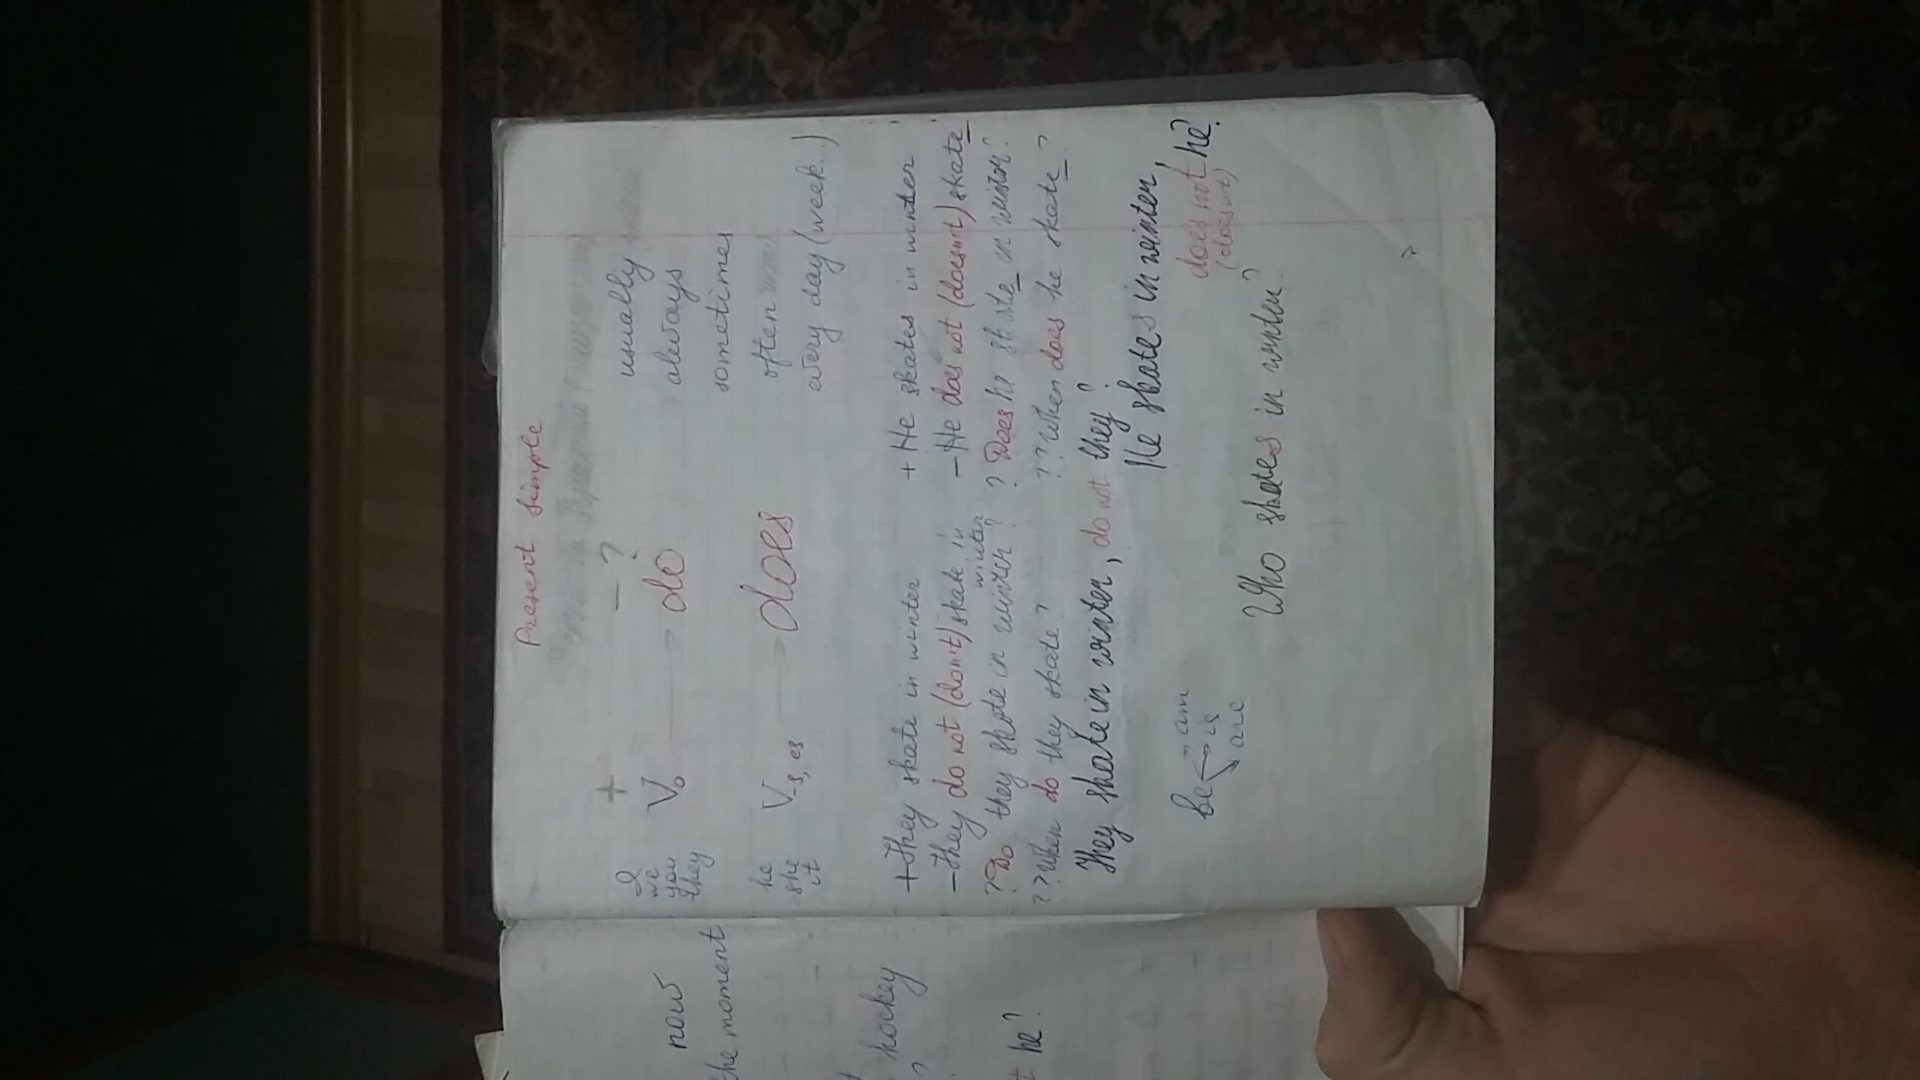 Present Simple
+ — ?
I
we
you
they
V₀ → do
usually
always
sometimes
he
she
it
V-s, es → does
often
every day (week...)
+ They skate in winter
− They do not (don't) skate in winter
? Do they skate in winter?
?? When do they skate?
They skate in winter, do not they?
+ He skates in winter
− He does not (doesn't) skate
? Does he skate in winter?
?? When does he skate?
He skates in winter,
does not he?
(doesn't)
be am
is
are
Who skates in winter?
now
the moment
hockey
?
he?